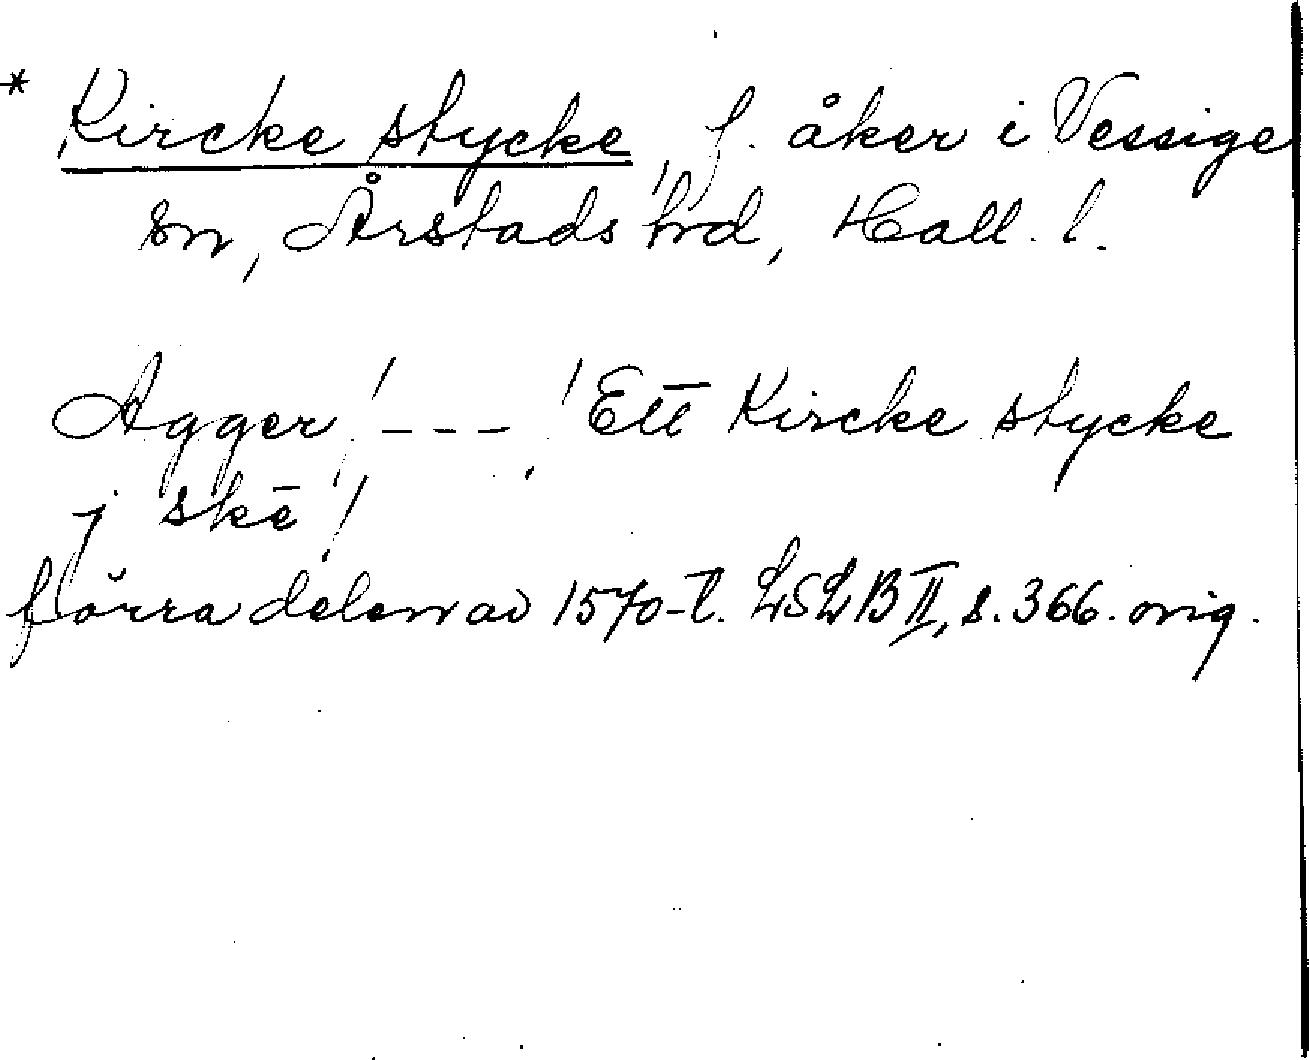 * Kircke stycke, f. åker i Vessige
sn, Årstads hrd, Hall. l.
Agger / --- / Ett Kircke stycke
j skē /
förra delen av 1570-t. LSLB II, s. 366. orig.